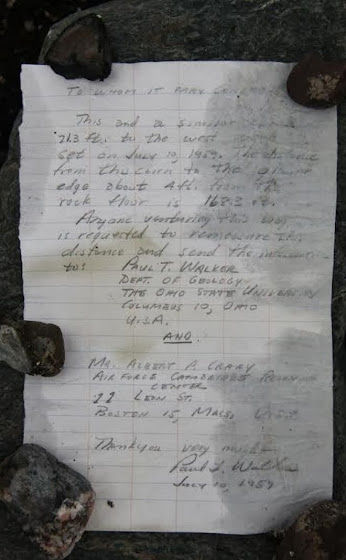 TO WHOM IT MAY CONCERN:
This and a similar
21.3 ft. to the west
set on July 10, 1959. The distance
from this cairn to the glacier
edge about 4 ft. from the
rock floor is 168.3 ft.
Anyone venturing this way
is requested to remeasure this
distance and send the information
to: PAUL T. WALKER
DEPT. OF GEOLOGY
THE OHIO STATE UNIVERSITY
COLUMBUS 10, OHIO
U.S.A.
AND
MR. ALBERT P. CRARY
AIR FORCE CAMBRIDGE
CENTER
11 LEON ST.
BOSTON 15, MASS. U.S.A.
Thank you very much
Paul T. Walker
July 10, 1959